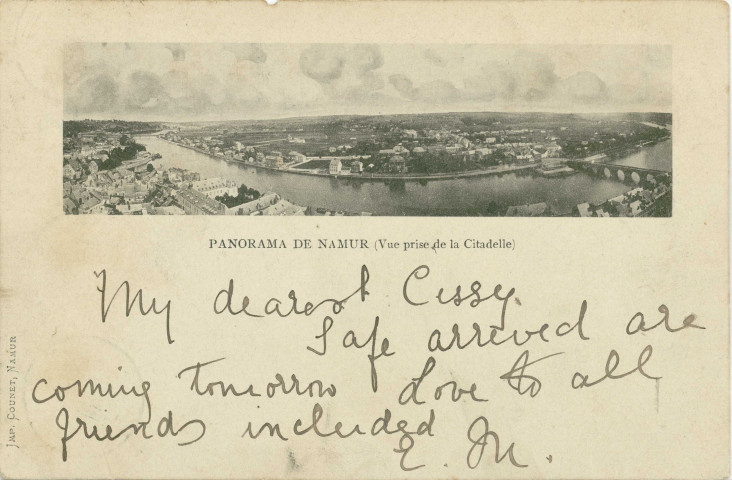 PANORAMA DE NAMUR (Vue prise de la Citadelle)
My dearest Cissy.
Safe arrived are
coming tomorrow Love to all
friends included
E. M.
IMP. COUNET, NAMUR